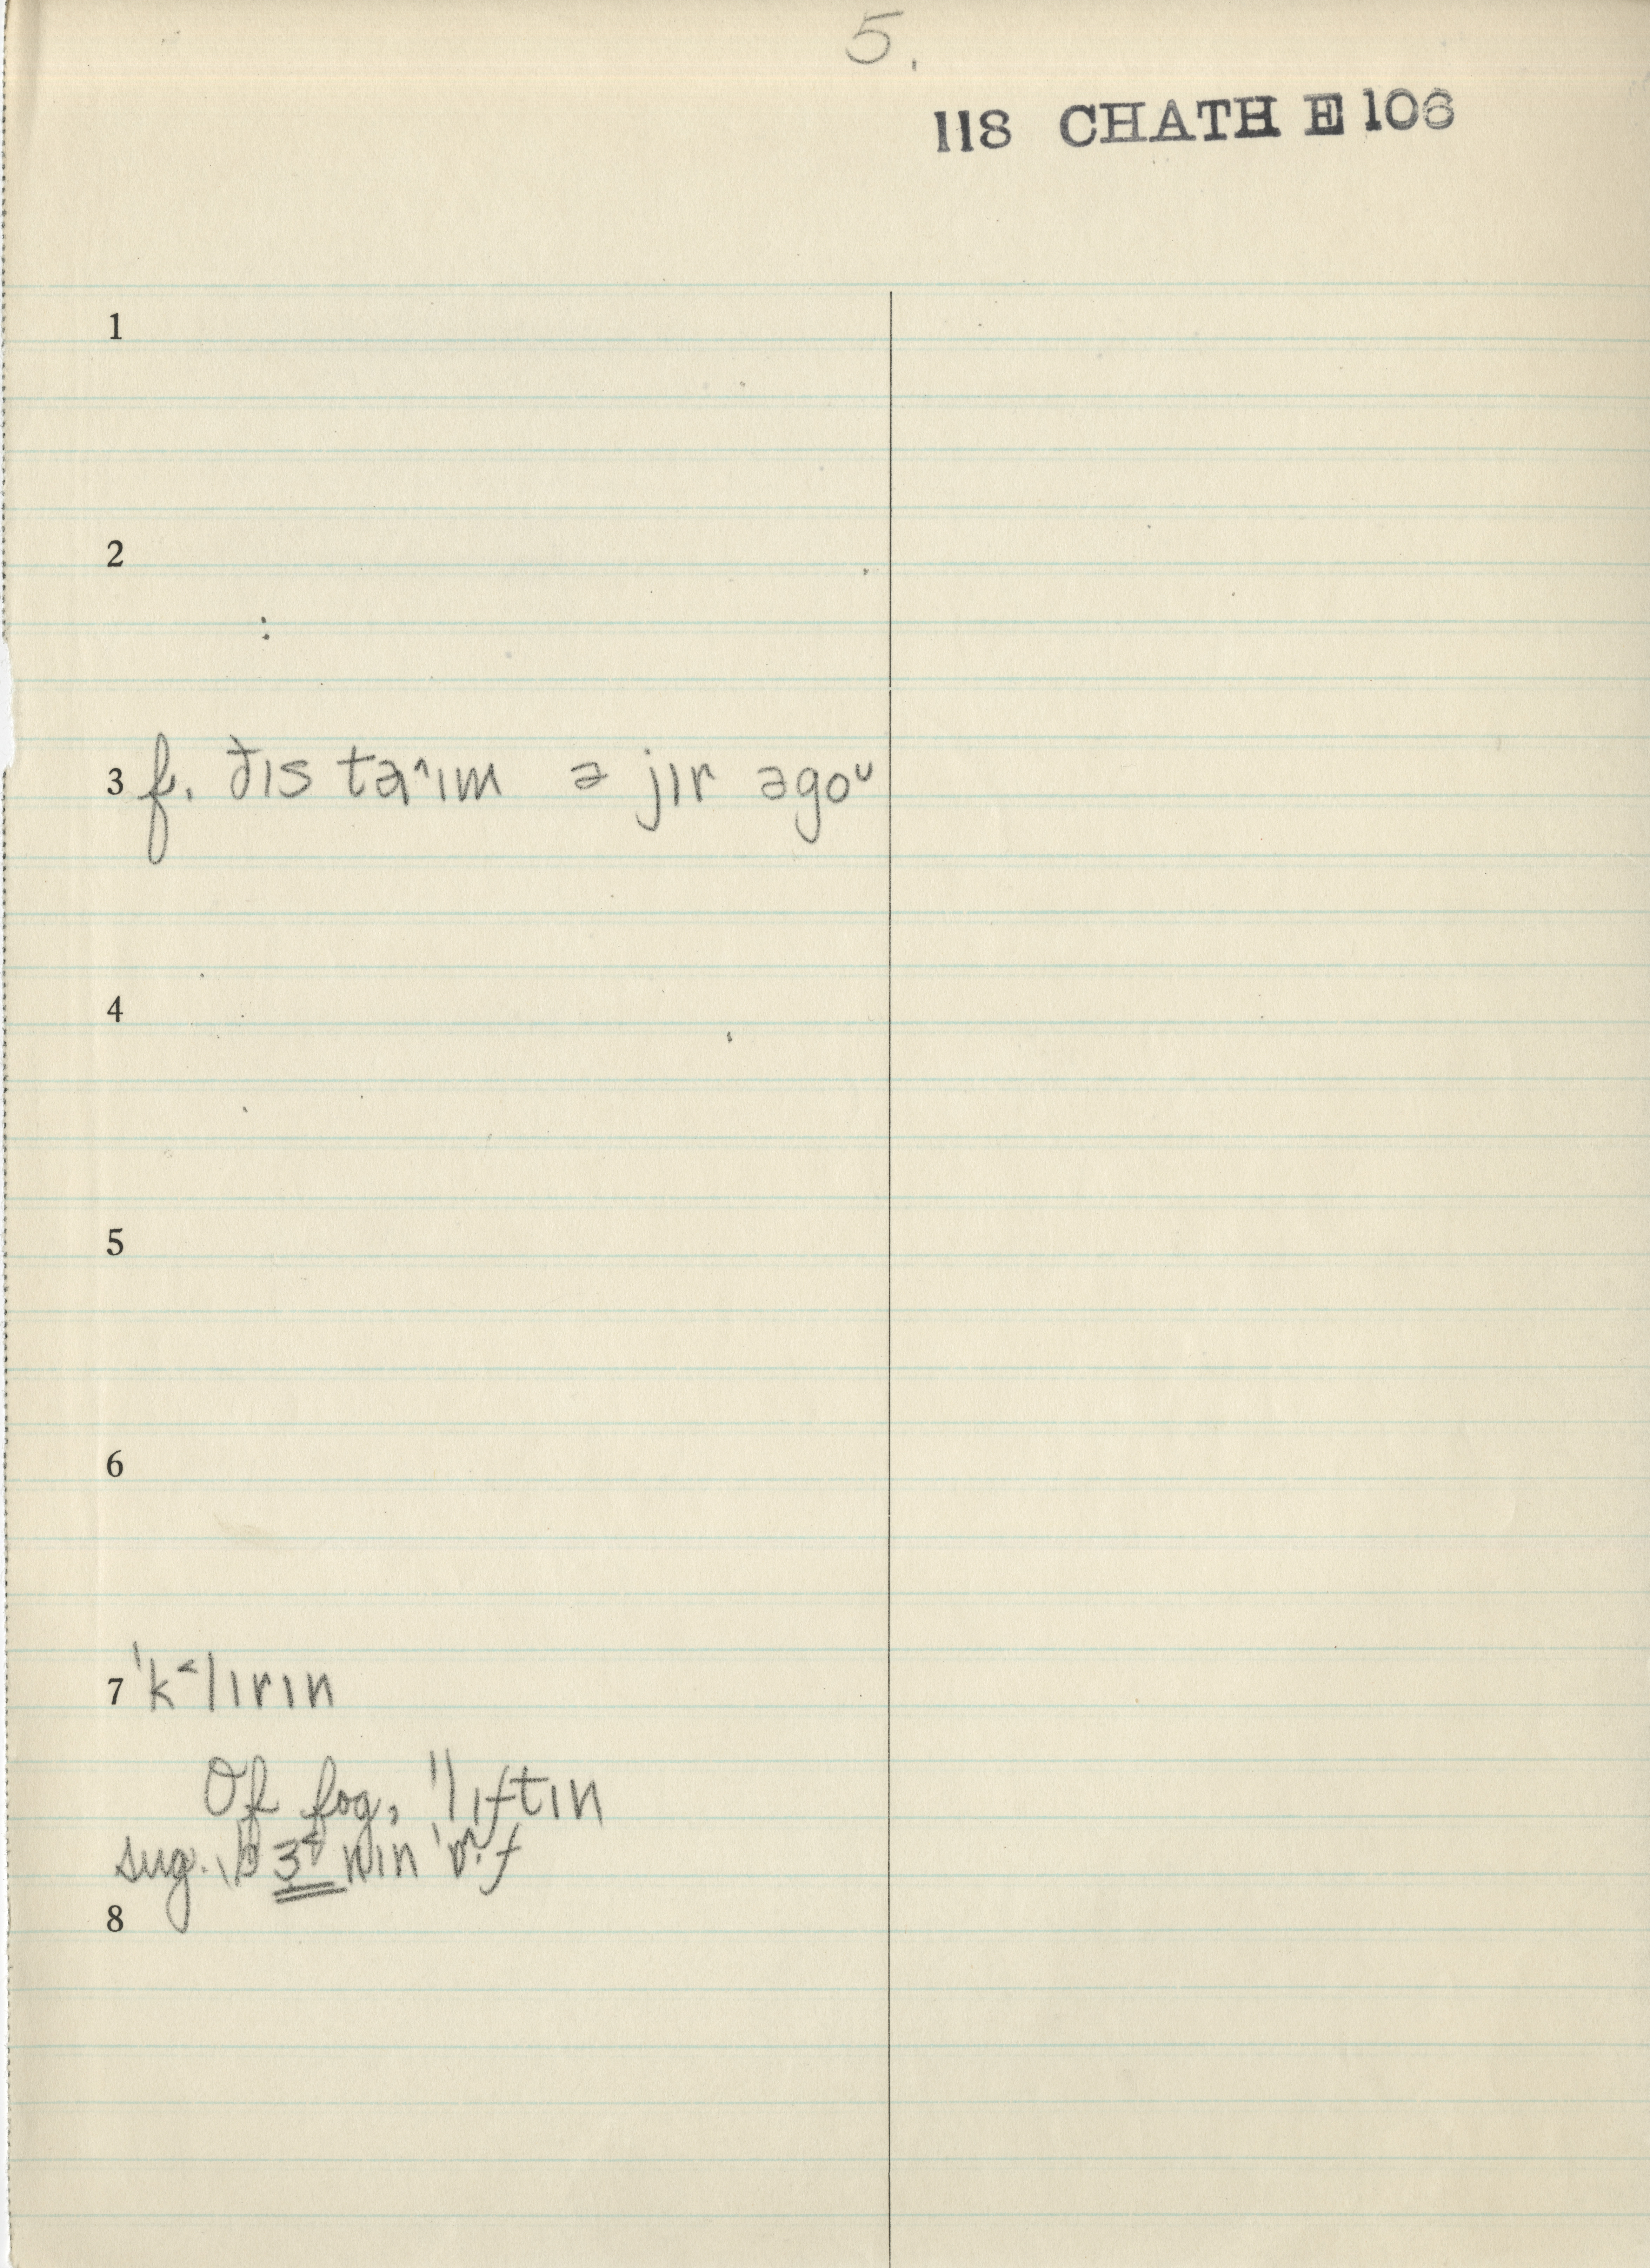 5.
118 CHATH E 106
1
2
3 f. ðɪs taˆɪm ə jɪr əgoᴜ
4
5
6
7 ˈk˂lɪrɪn
Of fog, ˈlɪftɪn
sug. ˌbɜ˂nɪn ˈɒˑf
8